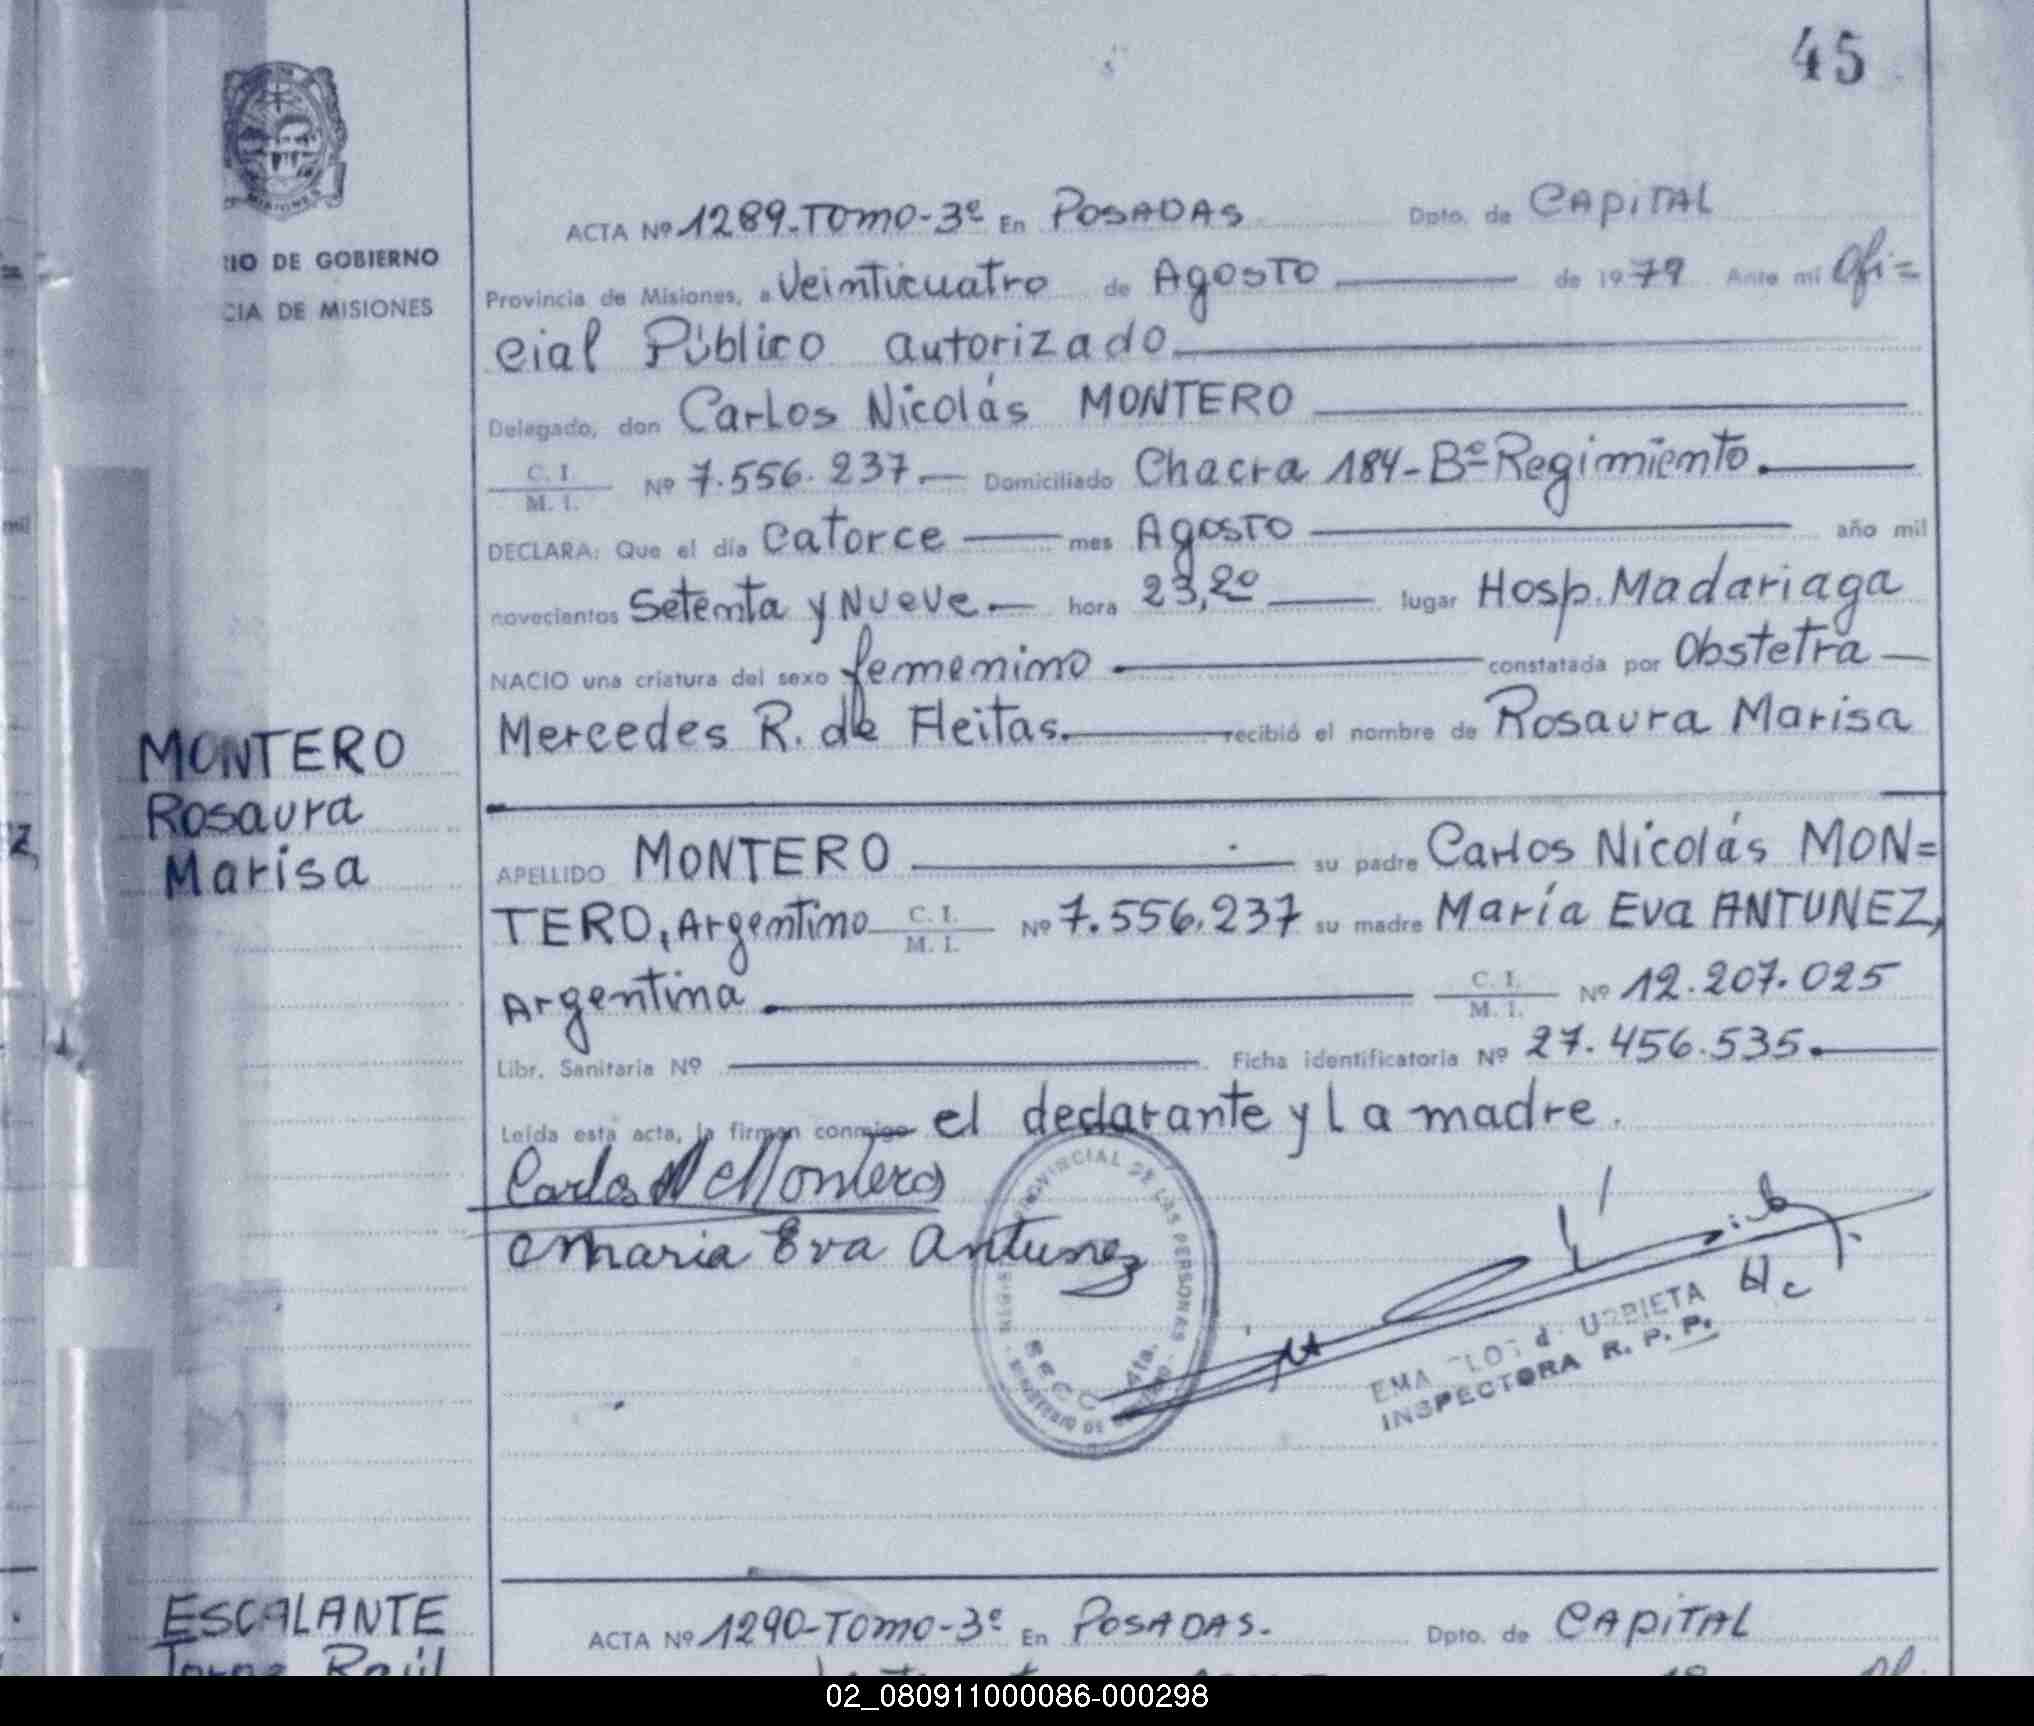 45
RIO DE GOBIERNO
CIA DE MISIONES
ACTA Nº 1289-TOMO-3º En POSADAS Dpto. de CAPITAL
Provincia de Misiones, a Veinticuatro de Agosto de 1979 Ante mí Ofi=
cial Público autorizado
Delegado, don Carlos Nicolás MONTERO
C. I.
M. I.
Nº 7.556.237.— Domiciliado Chacra 184-Bº Regimiento.
DECLARA: Que el día catorce mes Agosto año mil
novecientos Setenta y Nueve.— hora 23,20 lugar Hosp. Madariaga
NACIO una criatura del sexo femenino constatada por Obstetra
Mercedes R. de Fleitas. recibió el nombre de Rosaura Marisa
MONTERO
Rosaura
Marisa
APELLIDO MONTERO su padre Carlos Nicolás MON=
TERO, Argentino C. I. M. I. Nº 7.556.237 su madre María Eva ANTUNEZ,
Argentina. C. I. M. I. Nº 12.207.025
Libr. Sanitaria Nº Ficha identificatoria Nº 27.456.535.
Leída esta acta, la firman conmigo el declarante y la madre.
Carlos N Montero
Maria Eva Antunez
PROVINCIAL DE LAS PERSONAS
SECC 4ta.
MINISTERIO DE
EMA d URBIETA
INSPECTORA R. P. P.
ESCALANTE
ACTA Nº 1290-TOMO-3º En POSADAS. Dpto. de CAPITAL
Raúl
02_080911000086-000298